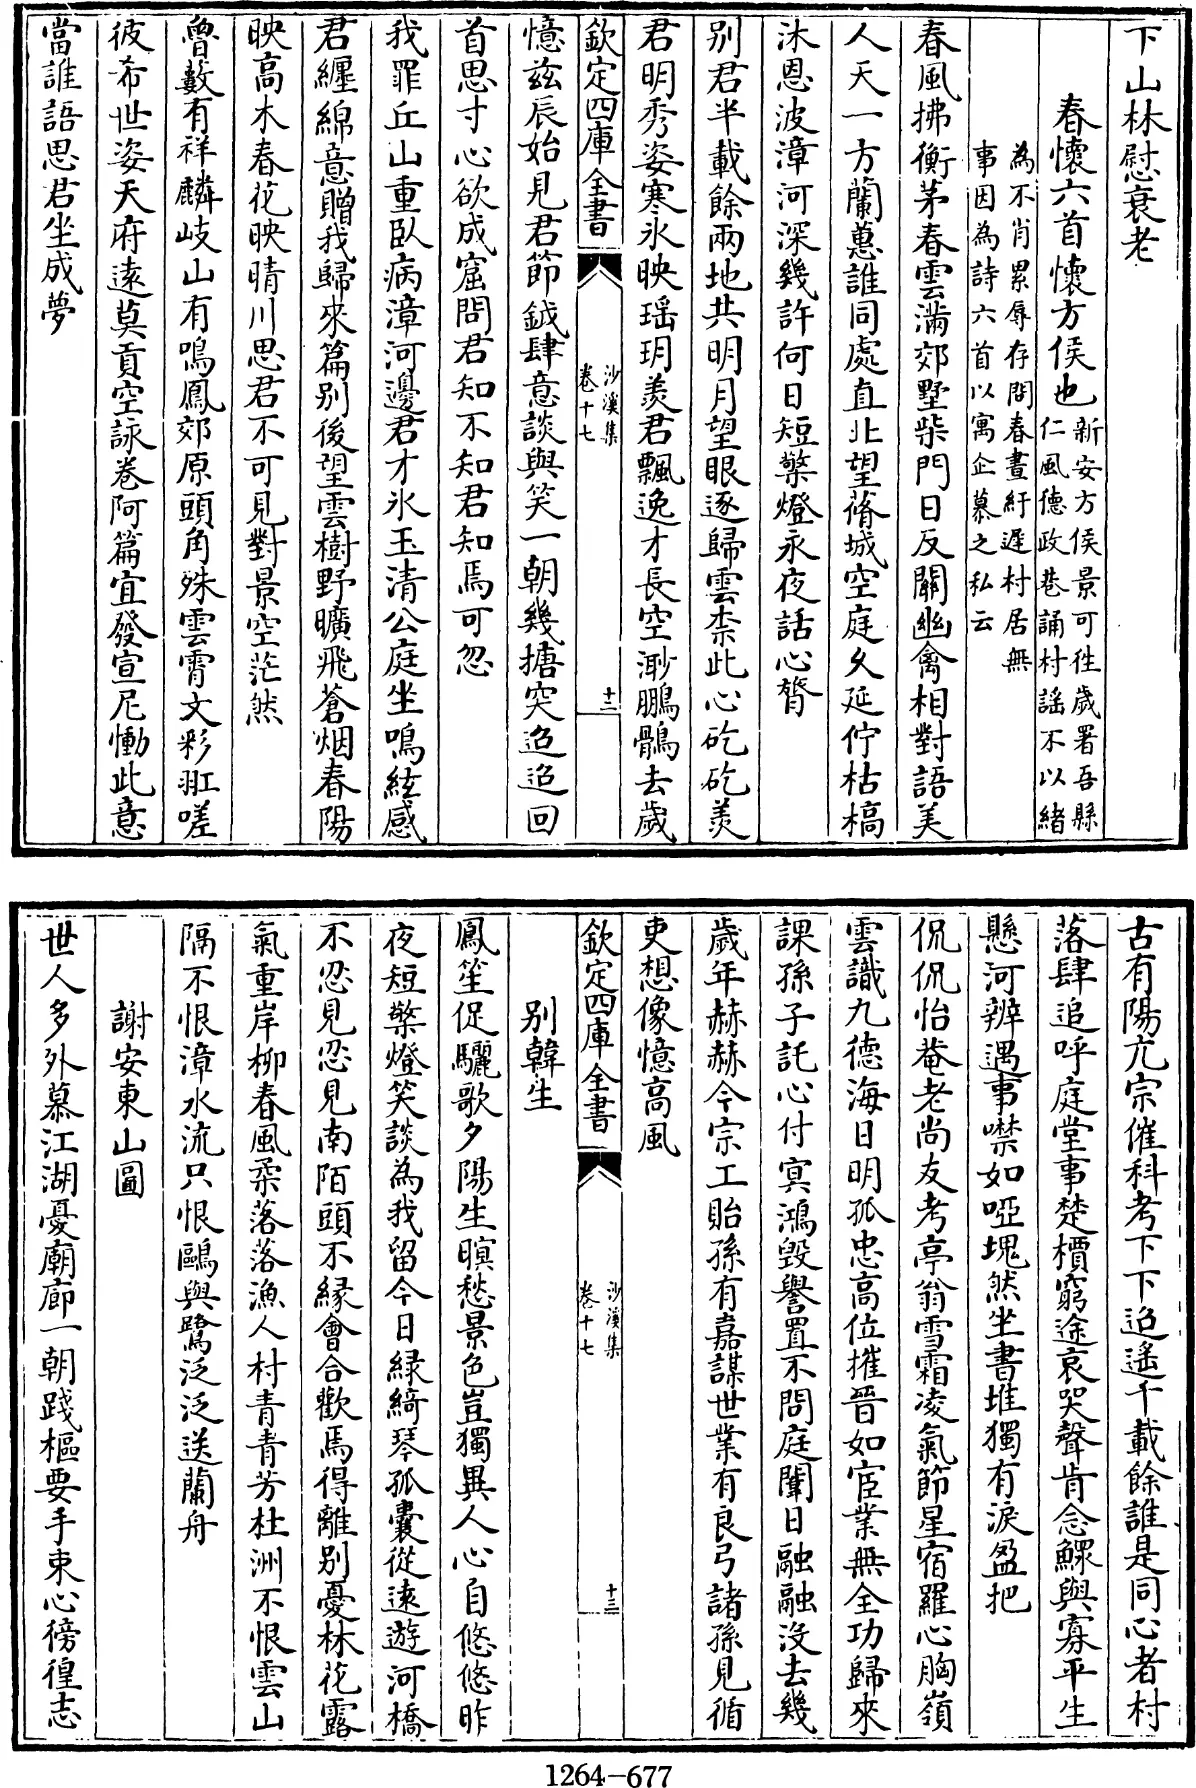 下山林慰衰老
春懷六首懷方侯也新安方侯景可徃歲署吾縣
仁風德政巷誦村謡不以緒
為不肖累辱存問春晝紆遲村居無
事因為詩六首以寓企慕之私云
春風拂衡茅春雲滿郊墅柴門日反關幽禽相對語美
人天一方蘭蕙誰同處直北望蓨城空庭久延佇枯槁
沐恩波漳河深幾許何日短檠燈永夜話心膂
别君半載餘兩地共明月望眼逐歸雲柰此心矻矻羨
君明秀姿寒氷映瑶玥羨君飄逸才長空渺鵬鶻去歲
欽定四庫全書
沙溪集
卷十七
十二
憶兹辰始見君節鉞肆意談與笑一朝幾搪突迢迢回
首思寸心欲成窟問君知不知君知焉可忽
我罪丘山重臥病漳河邊君才氷玉清公庭坐鳴絃感
君纏綿意贈我歸來篇别後望雲樹野曠飛蒼烟春陽
映高木春花映晴川思君不可見對景空茫然
魯藪有祥麟岐山有鳴鳳郊原頭角殊雲霄文彩羾嗟
彼希世姿天府逺莫貢空詠卷阿篇宜發宣尼慟此意
當誰語思君坐成夢
古有陽亢宗催科考下下迢遥千載餘誰是同心者村
落肆追呼庭堂事楚檟窮途哀哭聲肯念鰥與寡平生
懸河辨遇事噤如啞塊然坐書堆獨有淚盈把
侃侃怡菴老尚友考亭翁雪霜凌氣節星宿羅心胸嶺
雲識九德海日明孤忠高位摧晉如宦業無全功歸來
課孫子託心付㝠鴻毁譽置不問庭闈日融融沒去幾
歲年赫赫今宗工貽孫有嘉謀世業有良弓諸孫見循
吏想像憶高風
欽定四庫全書
沙溪集
卷十七
十三
别韓生
鳳笙促驪歌夕陽生暝愁景色豈獨異人心自悠悠昨
夜短檠燈笑談為我留今日緑綺琴孤囊從逺遊河橋
不忍見忍見南陌頭不緣會合歡焉得離别憂林花露
氣重岸柳春風柔落落漁人村青青芳杜洲不恨雲山
隔不恨漳水流只恨鷗與鷺泛泛送蘭舟
謝安東山圖
世人多外慕江湖憂廟廊一朝踐樞要手束心徬徨志
1264-677